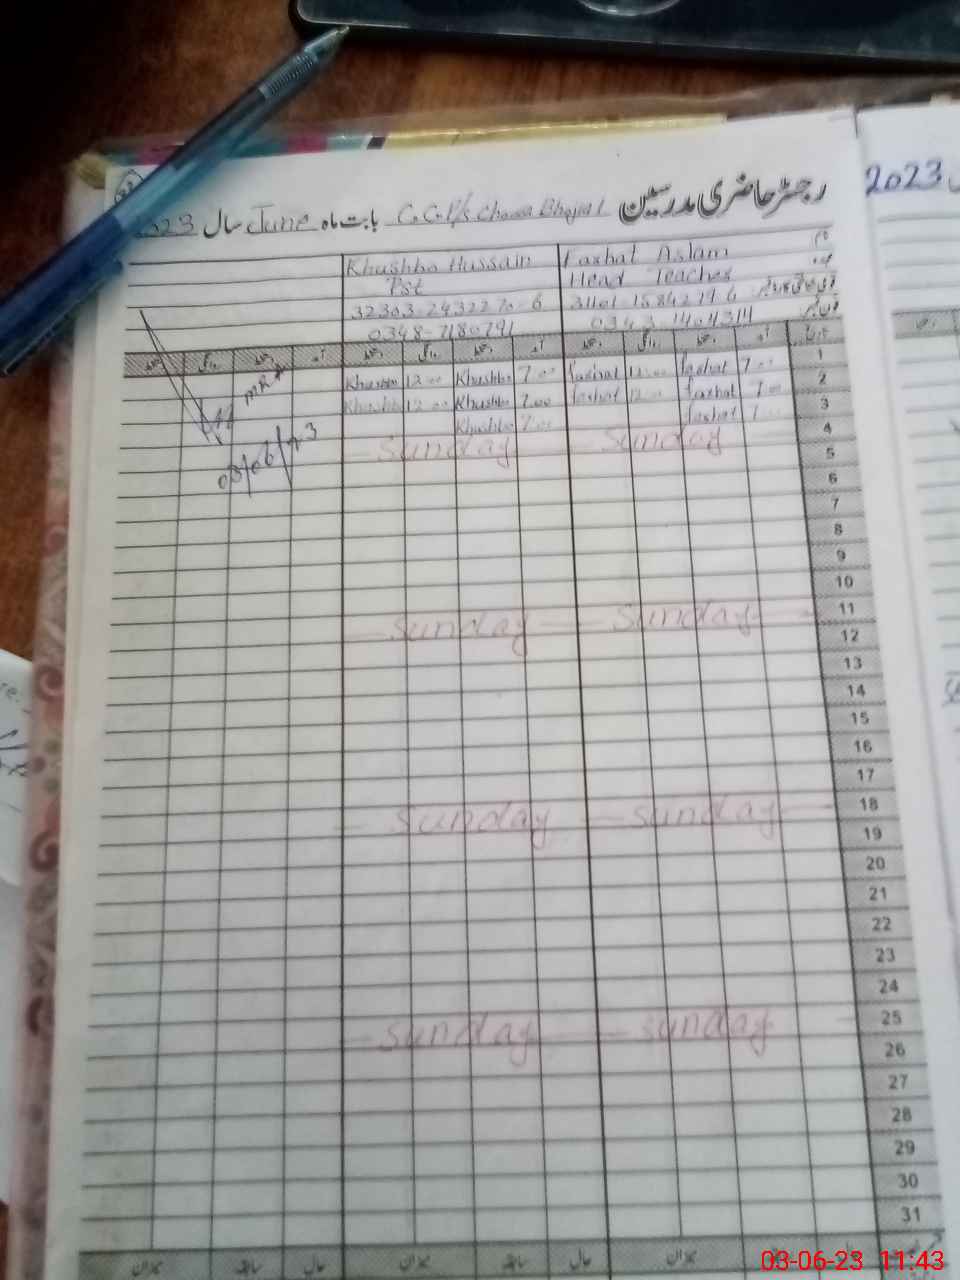 رجسٹر حاضری مدرسین G.G.P/S Chawa Bhojal بابت ماہ June سال 2023
2023
نام Farhat Aslam Khushbo Hussain
عہدہ Head Teacher Pst
قومی شناختی کارڈ نمبر 32303-2432270-6
فون نمبر 0343-1404314
تاریخ آمد دستخط روانگی دستخط آمد دستخط روانگی دستخط آمد دستخط روانگی دستخط
1 7:00 farhat 12:00 farhat 7:00 Khushbo 12:00 Khushbo
2 7:00 farhat 12:00 farhat 7:00 Khushbo 12:00 Khushbo
3 farhat 7:00 Khushbo
4 Sunday Sunday
03/06/23
5
6
7
8
9
10
11 Sunday Sunday
12
13
14
15
16
17
18 Sunday Sunday
19
20
21
22
23
24
25 Sunday Sunday
26
27
28
29
30
31
حال سابقہ میزان حال سابقہ میزان حال سابقہ میزان
03-06-23 11:43